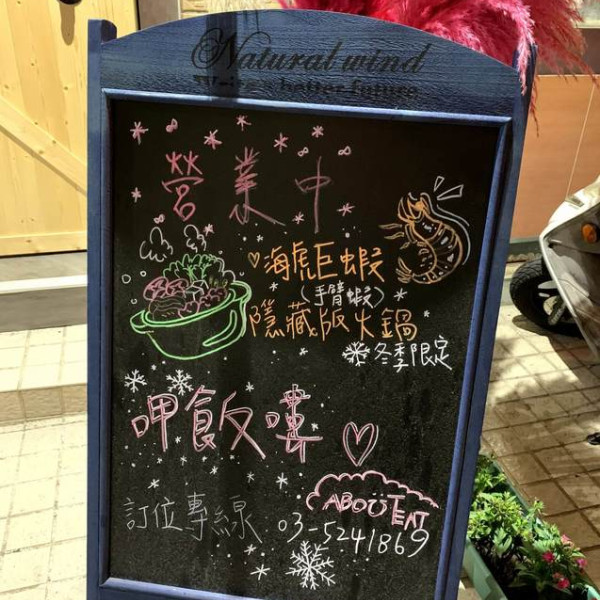 Natural wind
better future
營業中
海虎巨蝦
(手臂蝦)
隱藏版火鍋
冬季限定
呷飯嘍
ABOUT EAT
訂位專線 03-5241869